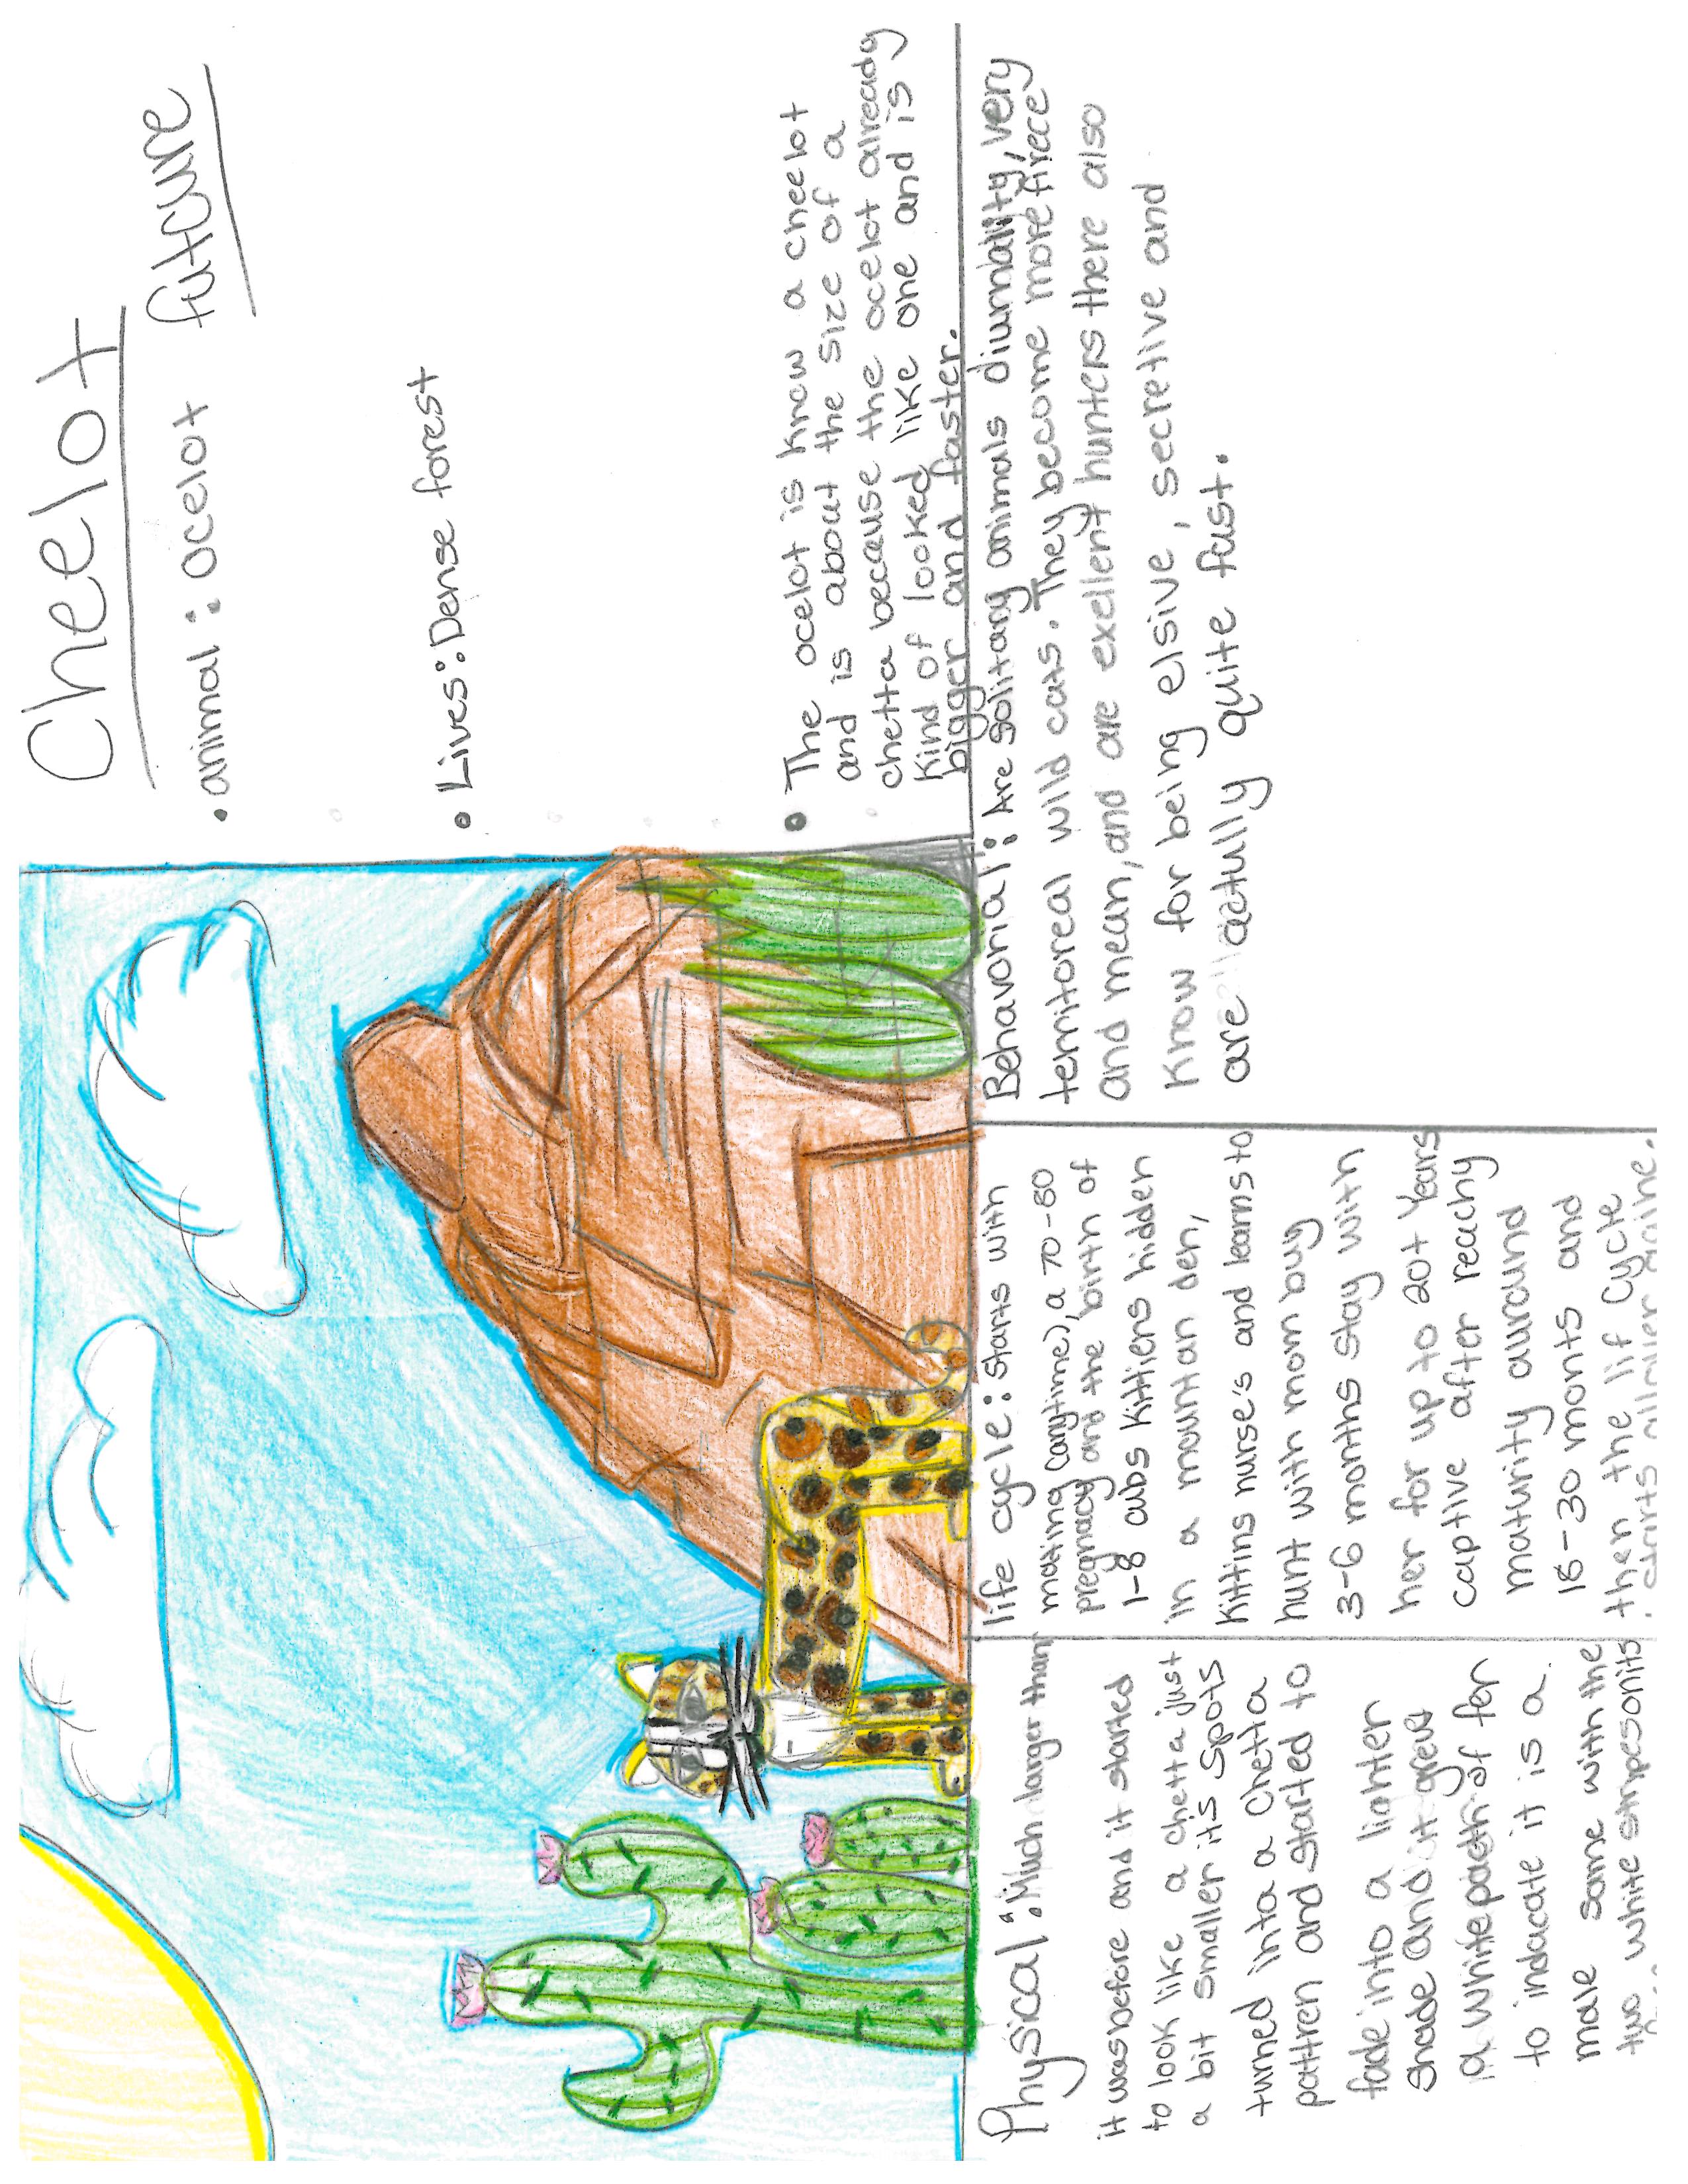 Cheelot
• animal : ocelot future
• Lives: Dense forest
• The ocelot is know a cheelot
and is about the size of a
chetta because the ocelot already
kind of looked like one and is
bigger and faster.
Physical: Much larger than
it was before and it started
to look like a chetta just
a bit smaller its spots
turned inta a chetta
pattren and started to
fade into a lighter
shade and it grew
a white patch of fer
to indacate it is a
male same with the
two white stripes on its
life cycle: starts with
mating (anytime), a 70-80
pregnacy and the birth of
1-8 cubs kittiens hidden
in a mountian den,
kittins nurse's and learns to
hunt with mom buy
3-6 months stay with
her for up to 20+ years
captive after reachy
maturity auround
18-30 monts and
then the lif cycle
starts
Behavorial: Are solitary animals diurnality, very
territoreal wild cats. They become more fierce
and mean, and are exellent hunters there also
know for being elsive, secretive and
are actully quite fast.